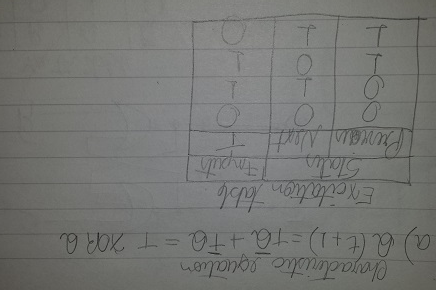 Characteristic equation
a) Q(t+1) = TQ̄ + T̄Q = T XOR Q
Excitation table
States Inputs
Previous Next T
0 0 0
0 1 1
1 0 1
1 1 0